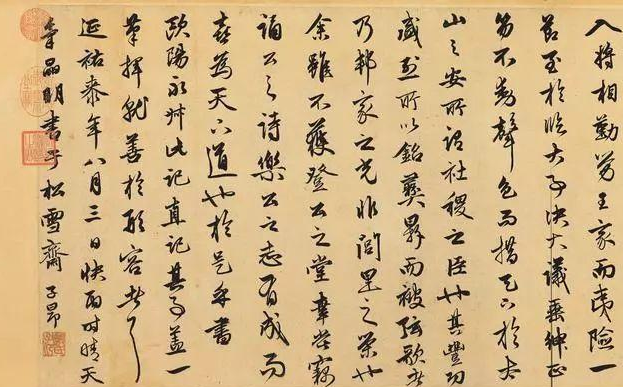 入將相勤勞王家而夷險一
節至於臨大事決大議垂紳正
笏不動聲色而措天下於太
山之安可謂社稷之臣也其豐功
盛烈所以銘彝鼎而被弦歌者
乃邦家之光非閭里之榮也
余雖不獲登公之堂幸嘗竊
誦公之詩樂公之志有成而
喜為天下道也於是乎書
歐陽永叔此記直記其事蓋一
筆揮就善於形容者
延祐泰年八月三日快雨時晴天
氣晶明書于松雪齋 子昂